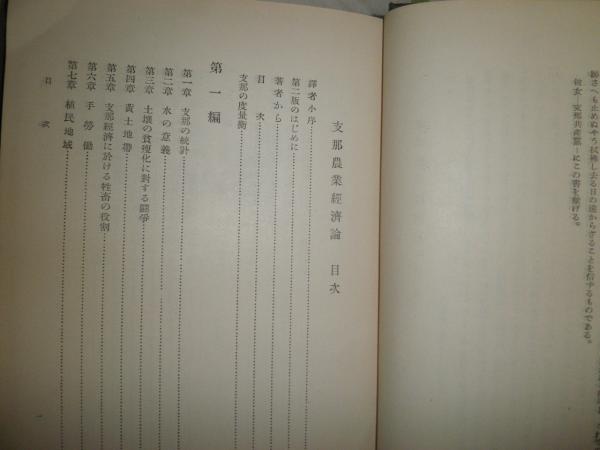 跡さへも止めぬやう拭掃し去る日の遠からざることを信ずるものである。
彼女―支那共産黨―にこの書を捧げる。
支那農業經濟論 目次
譯者小序
第二版のはじめに
著者から
目次
支那の度量衡
第一編
第一章 支那の統計
第二章 水の意義
第三章 土壤の貧瘠化に對する鬪爭
第四章 黄土地帶
第五章 支那經濟に於ける牲畜の役割
第六章 手勞働
第七章 植民地域
目次
一